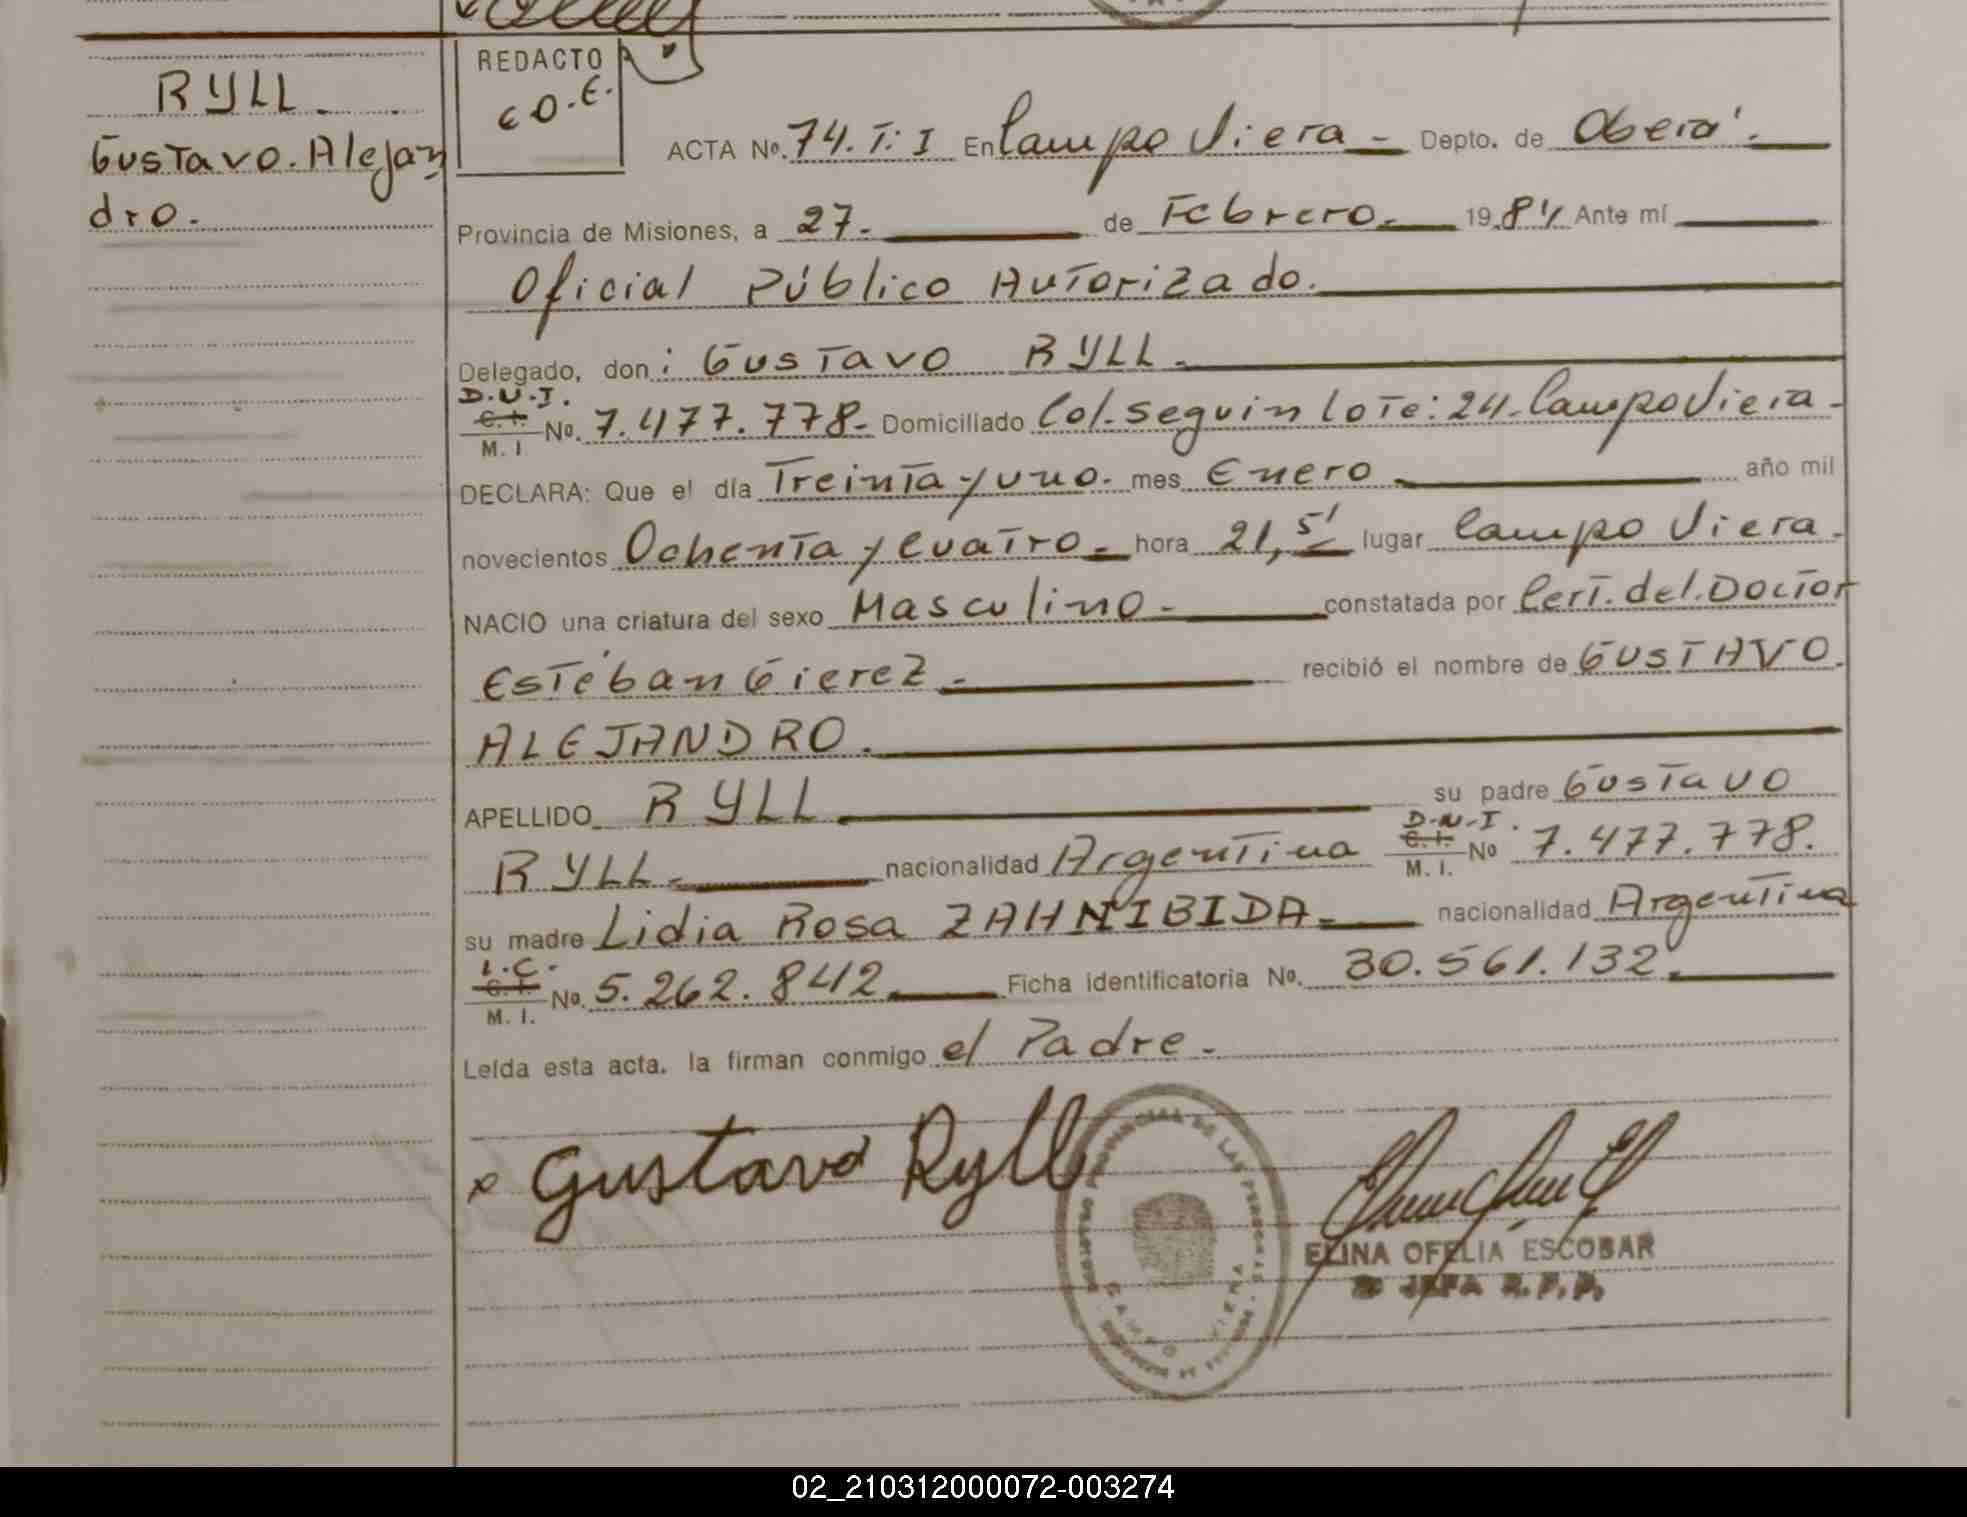 RYLL.
Gustavo. Alejan
dro.
REDACTO
E O. E.
ACTA No. 74. T: I En Campo Viera - Depto. de Oberá.
Provincia de Misiones, a 27. de Febrero. 1984 Ante mí
Oficial Público Autorizado.
Delegado, don: Gustavo RYLL.
D.N.I.
C. I.
M. I No. 7.477.778- Domiciliado Col. Seguin Lote: 24. Campo Viera -
DECLARA: Que el día Treinta y uno. mes Enero año mil
novecientos Ochenta y Cuatro - hora 21,5' lugar Campo Viera.
NACIO una criatura del sexo Masculino - constatada por Cert. del. Doctor
Esteban Gierez - recibió el nombre de GUSTAVO.
ALEJANDRO.
APELLIDO RYLL su padre Gustavo
RYLL. nacionalidad Argentina
D.N.I.
C. I.
M. I. No 7.477.778.
su madre Lidia Rosa ZAHNIBIDA. nacionalidad Argentina
L.C.
C. I.
M. I. No. 5.262.842 Ficha identificatoria No. 30.561.132.
Leída esta acta. la firman conmigo el Padre.
x Gustavo Ryll
PROVINCIAL DE LAS PERSONAS
CAMPO VIERA
ELINA OFELIA ESCOBAR
JEFA R. P. P.
02_210312000072-003274